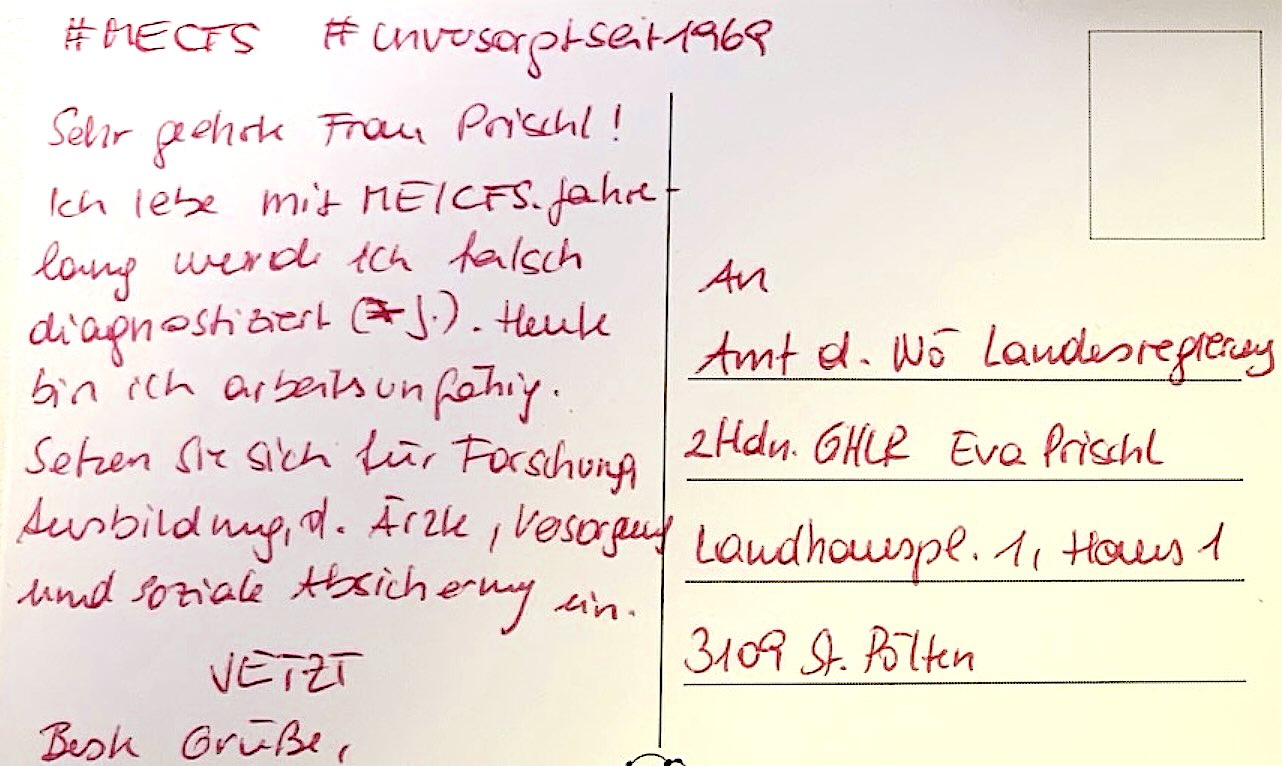 #MECFS #unversorgtseit1969
Sehr geehrte Frau Prischl!
Ich lebe mit ME/CFS. Jahre-
lang werde ich falsch
diagnostiziert (J.). Heute
bin ich arbeitsunfähig.
Setzen Sie sich für Forschung,
Ausbildung, d. Ärzte, Versorgung
und soziale Absicherung ein.
JETZT
Beste Grüße,
An
Amt d. NÖ Landesregierung
zHdn. GHLR Eva Prischl
Landhauspl. 1, Haus 1
3109 St. Pölten